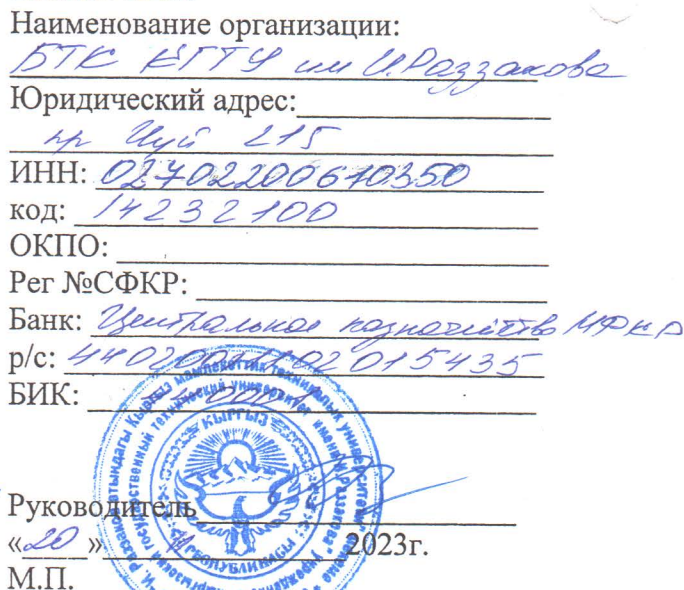 Наименование организации:
БТК КГТУ им И.Раззакова
Юридический адрес:
пр Чуй 215
ИНН: 02702200610350
код: 14232100
ОКПО:
Рег №СФКР:
Банк: Центральное казначейство МФКР
р/с:
БИК:
КЫРГЫЗ
РЕСПУБЛИКАСЫ
Руководитель
«20» 11 2023г.
М.П.